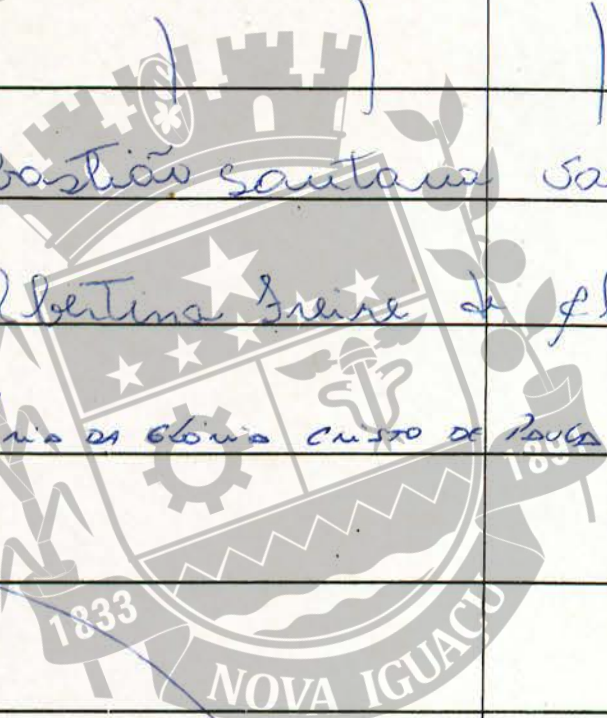 bastião Santana Sa
lbertina Freire de
ria DA GLÓRIA CRISTO DE PAULA
1833
NOVA IGUAÇU